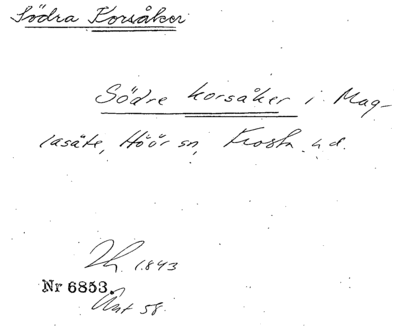 Södra Korsåker
Södre korsåker i Mag-
lasäte, Höör sn, Frosta hd.
1843
Nr 6853.
Ant 58.